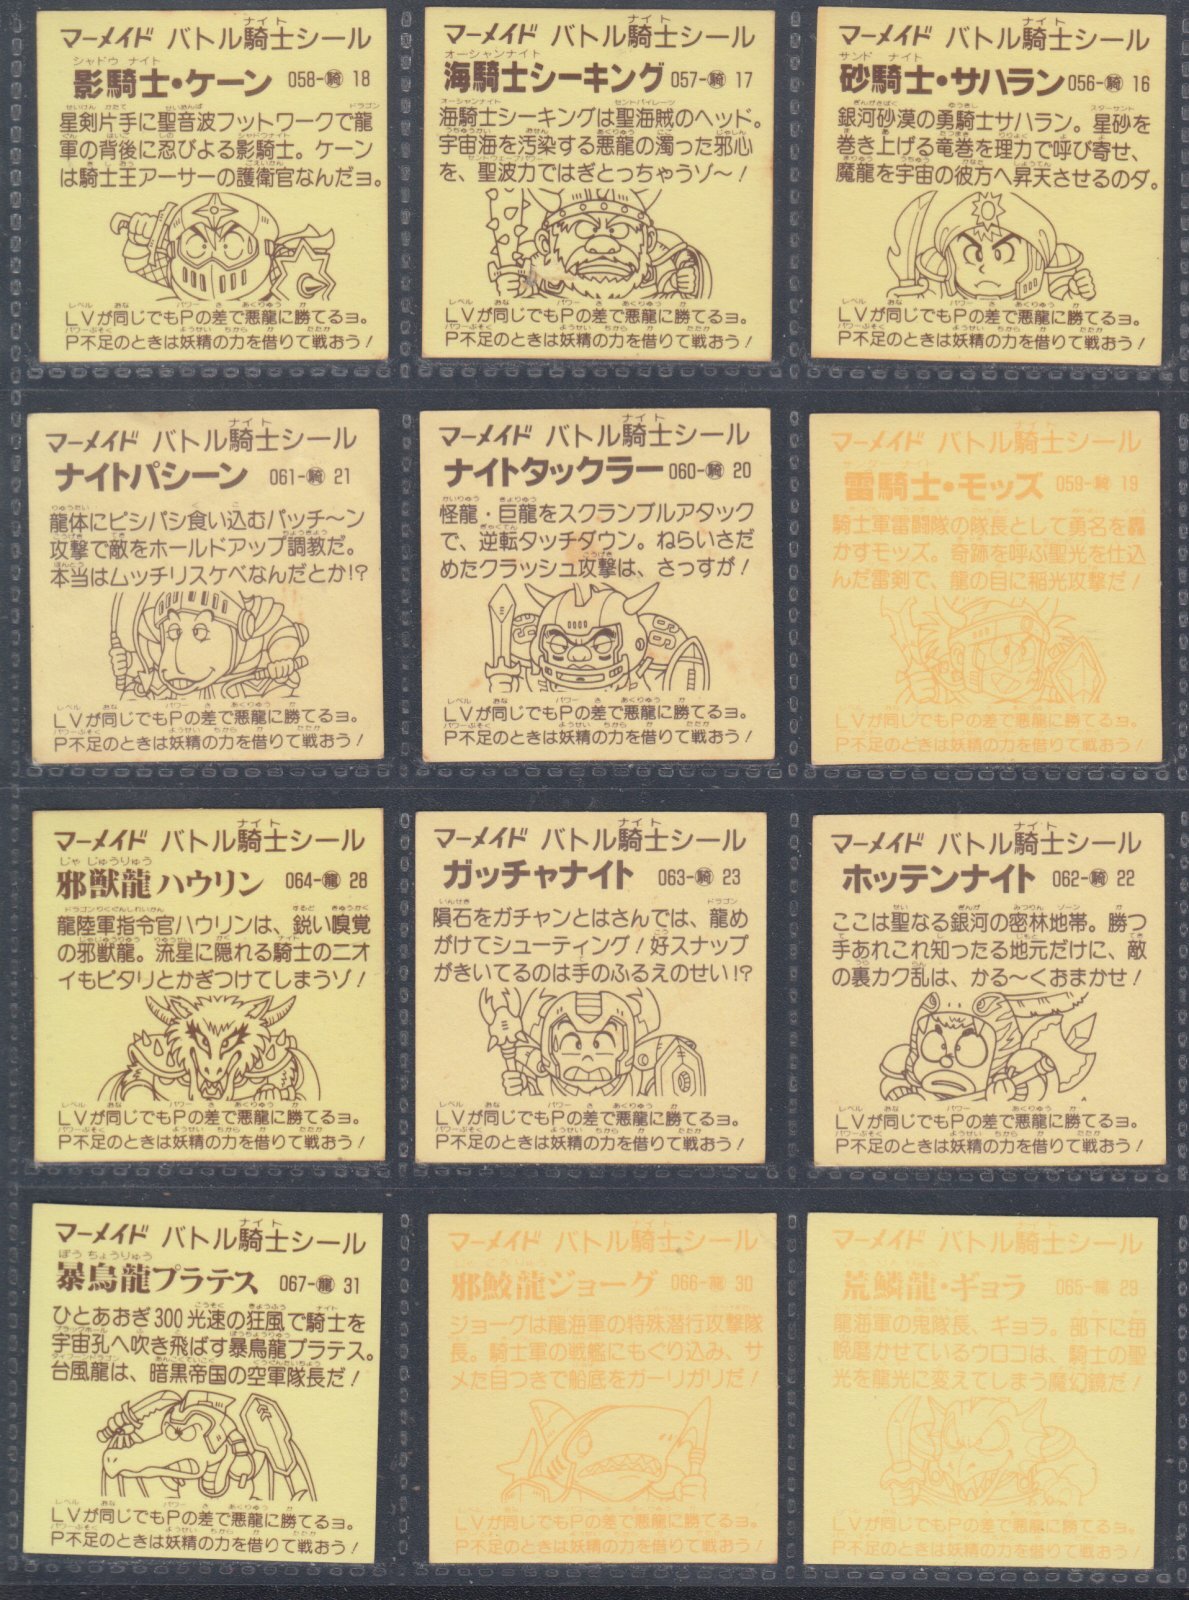 マーメイド バトル騎士シール
影騎士・ケーン 058-騎 18
星剣片手に聖音波フットワークで龍
軍の背後に忍びよる影騎士。ケーン
は騎士王アーサーの護衛官なんだヨ。
LVが同じでもPの差で悪龍に勝てるヨ。
P不足のときは妖精の力を借りて戦おう！
マーメイド バトル騎士シール
海騎士シーキング 057-騎 17
海騎士シーキングは聖海賊のヘッド。
宇宙海を汚染する悪龍の濁った邪心
を、聖波力ではぎとっちゃうゾ〜！
LVが同じでもPの差で悪龍に勝てるヨ。
P不足のときは妖精の力を借りて戦おう！
マーメイド バトル騎士シール
砂騎士・サハラン 056-騎 16
銀河砂漠の勇騎士サハラン。星砂を
巻き上げる竜巻を理力で呼び寄せ、
魔龍を宇宙の彼方へ昇天させるのダ。
LVが同じでもPの差で悪龍に勝てるヨ。
P不足のときは妖精の力を借りて戦おう！
マーメイド バトル騎士シール
ナイトパシーン 061-騎 21
龍体にピシパシ食い込むパッチ〜ン
攻撃で敵をホールドアップ調教だ。
本当はムッチリスケベなんだとか!?
LVが同じでもPの差で悪龍に勝てるヨ。
P不足のときは妖精の力を借りて戦おう！
マーメイド バトル騎士シール
ナイトタックラー 060-騎 20
怪龍・巨龍をスクランブルアタック
で、逆転タッチダウン。ねらいさだ
めたクラッシュ攻撃は、さっすが！
LVが同じでもPの差で悪龍に勝てるヨ。
P不足のときは妖精の力を借りて戦おう！
マーメイド バトル騎士シール
雷騎士・モッズ 059-騎 19
騎士軍雷闘隊の隊長として勇名を轟
かすモッズ。奇跡を呼ぶ聖光を仕込
んだ雷剣で、龍の目に稲光攻撃だ！
LVが同じでもPの差で悪龍に勝てるヨ。
P不足のときは妖精の力を借りて戦おう！
マーメイド バトル騎士シール
邪獣龍ハウリン 064-龍 28
龍陸軍指令官ハウリンは、鋭い嗅覚
の邪獣龍。流星に隠れる騎士のニオ
イもピタリとかぎつけてしまうゾ！
LVが同じでもPの差で悪龍に勝てるヨ。
P不足のときは妖精の力を借りて戦おう！
マーメイド バトル騎士シール
ガッチャナイト 063-騎 23
隕石をガチャンとはさんでは、龍め
がけてシューティング！好スナップ
がきいてるのは手のふるえのせい!?
LVが同じでもPの差で悪龍に勝てるヨ。
P不足のときは妖精の力を借りて戦おう！
マーメイド バトル騎士シール
ホッテンナイト 062-騎 22
ここは聖なる銀河の密林地帯。勝つ
手あれこれ知ったる地元だけに、敵
の裏カク乱は、かる〜くおまかせ！
LVが同じでもPの差で悪龍に勝てるヨ。
P不足のときは妖精の力を借りて戦おう！
マーメイド バトル騎士シール
暴鳥龍プラテス 067-龍 31
ひとあおぎ300光速の狂風で騎士を
宇宙孔へ吹き飛ばす暴鳥龍プラテス。
台風龍は、暗黒帝国の空軍隊長だ！
LVが同じでもPの差で悪龍に勝てるヨ。
P不足のときは妖精の力を借りて戦おう！
マーメイド バトル騎士シール
邪鮫龍ジョーグ 066-龍 30
ジョーグは龍海軍の特殊潜行攻撃隊
長。騎士軍の戦艦にもぐり込み、サ
メた目つきで船底をガーリガリだ！
LVが同じでもPの差で悪龍に勝てるヨ。
P不足のときは妖精の力を借りて戦おう！
マーメイド バトル騎士シール
荒鱗龍・ギョラ 065-龍 29
龍海軍の鬼隊長、ギョラ。部下に毎
晩磨かせているウロコは、騎士の聖
光を龍光に変えてしまう魔幻鏡だ！
LVが同じでもPの差で悪龍に勝てるヨ。
P不足のときは妖精の力を借りて戦おう！